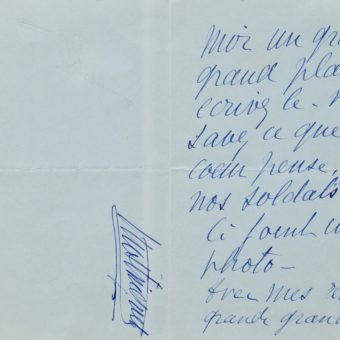 moi un gra
grand pla
écrivez le - 
savez ce que
coeur pense,
nos soldats
Ci joint u
photo -
Avec mes re
grande gran